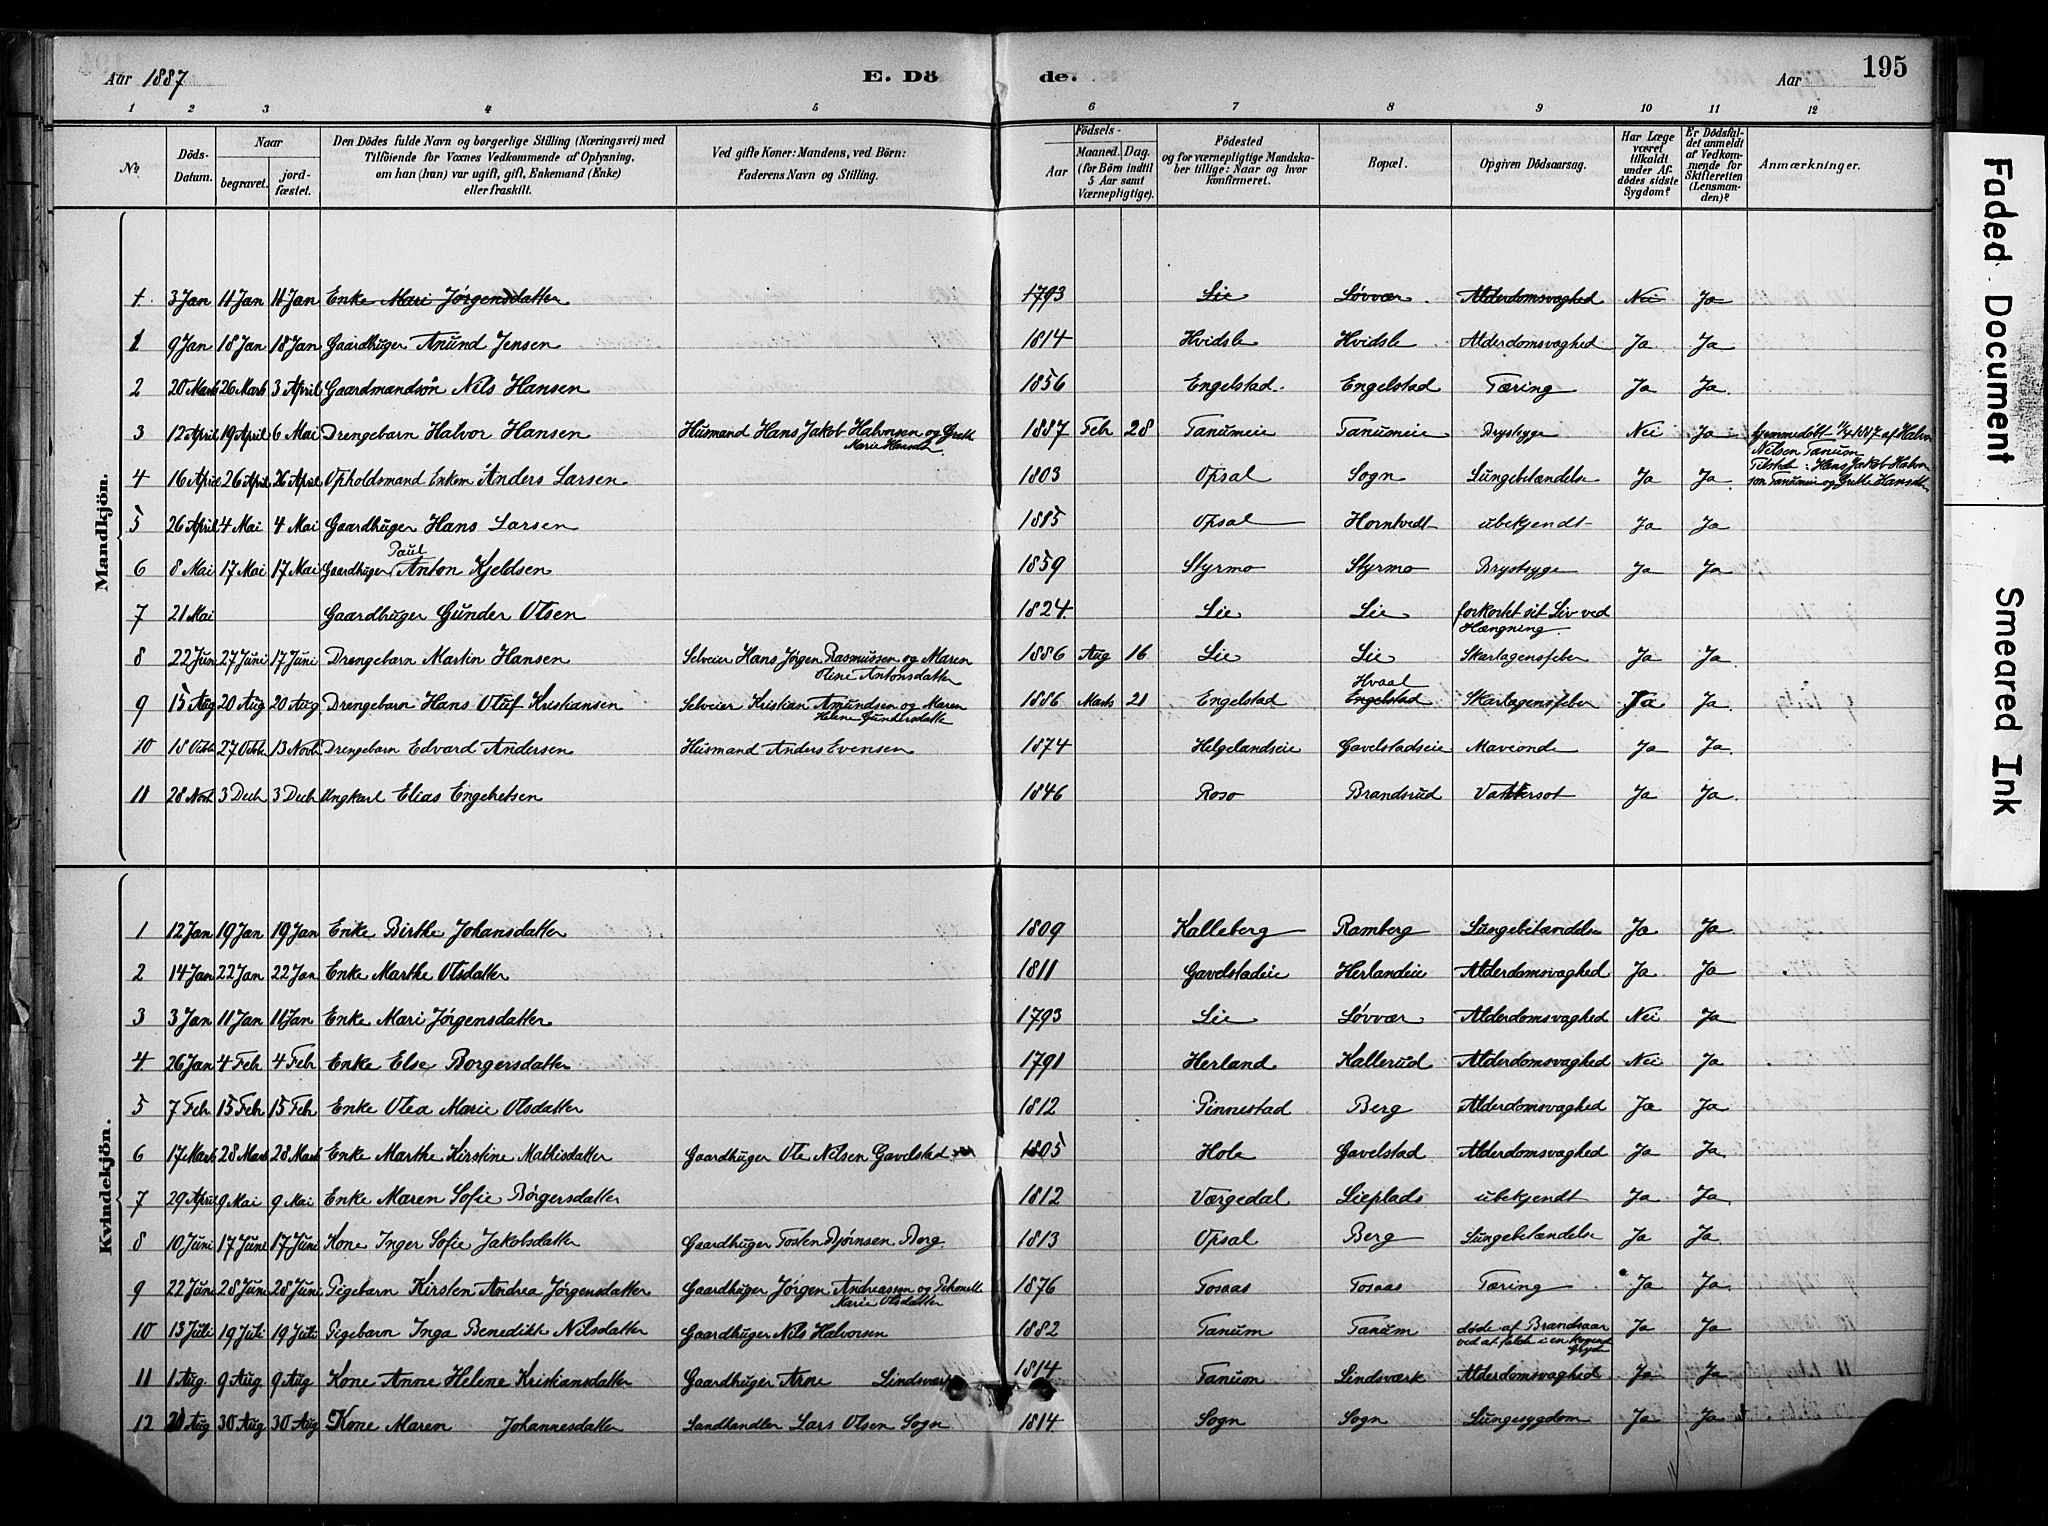 Aar 1887 E. Dö de. Aar 195
1 2 3 4 5 6 7 8 9 10 11 12
No. Döds-Datum. Naar begravet. jordfæstet. Den Dödes fulde Navn og borgerlige Stilling (Næringsvei) med Tilföiende for Voxnes Vedkommende af Oplysning, om han (hun) var ugift, gift, Enkemand (Enke) eller fraskilt. Ved gifte Koner: Mandens, ved Börn: Faderens Navn og Stilling. Födsels-Aar Maaned. Dag. (for Börn indtil 5 Aar samt Værnepligtige). Födested og for værnepligtige Mandskaber tillige: Naar og hvor konfirmeret. Bopæl. Opgiven Dödsaarsag. Har Læge været tilkaldt under Afdödes sidste Sygdom? Er Dödsfaldet anmeldt af Vedkommende for Skifteretten (Lensmanden)? Anmærkninger.
Mandkjön.
1 3 Jan 11 Jan 11 Jan Enke Mari Jörgensdatter 1793 Lie Lövvær Alderdomsvaghed Nei Ja
1 9 Jan 18 Jan 18 Jan Gaardbruger Anund Jensen 1814 Hvidsle Hvidsle Alderdomsvaghed Ja Ja
2 20 Marts 26 Marts 3 April Gaardmandsön Nils Hansen 1856 Engelstad Engelstad Tæring Ja Ja
3 12 April 19 April 6 Mai Drengebarn Halvor Hansen Husmand Hans Jakob Halvorsen og Grethe Marie Hansdt. 1887 Feb 28 Tanumeie Tanumeie Brystsyge Nei Ja Hjemmedöbt 1/4 1887 af Halvor Nilsen Tanum
4 16 April 26 April 26 April Opholdsmand Enkem Anders Larsen 1803 Opsal Sogn Lungebetændelse Ja Ja Tilsted: Hans Jakob Halvorsen Tanumeie og Grethe Hansdtr
5 26 April 4 Mai 4 Mai Gaardbruger Hans Larsen 1815 Opsal Horntvedt ubekjendt Ja Ja
6 8 Mai 17 Mai 17 Mai Gaardbruger Paul Anton Kjeldsen 1859 Styrmo Styrmo Brystsyge Ja Ja
7 21 Mai Gaardbruger Gunder Olsen 1824 Lie Lie forkortet sit Liv ved Hængning
8 22 Jun 27 Juni 17 Juni Drengebarn Martin Hansen Selveier Hans Jörgen Rasmussen og Maren Oline Antonsdatter 1886 Aug 16 Lie Lie Skarlagensfeber Ja Ja
9 15 Aug 20 Aug 20 Aug Drengebarn Hans Oluf Kristiansen Selveier Kristian Amundsen og Maren Helene Gundersdatter 1886 Marts 21 Engelstad Hvaal Engelstad Skarlagensfeber Ja Ja
10 18 Octb 27 Octb 13 Novb Drengebarn Edvard Andersen Husmand Anders Evensen 1874 Helgelandseie Gavelstadseie Maveonde Ja Ja
11 28 Novb 3 Decb 3 Decb Ungkarl Elias Engebretsen 1846 Roso Brandsrud Vattersot Ja Ja
Kvindekjön.
1 12 Jan 19 Jan 19 Jan Enke Birthe Johansdatter 1809 Kalleberg Ramberg Lungebetændelse Ja Ja
2 14 Jan 22 Jan 22 Jan Enke Marthe Olsdatter 1811 Gavelstadeie Herlandeie Alderdomsvaghed Ja Ja
3 3 Jan 11 Jan 11 Jan Enke Mari Jörgensdatter 1793 Lie Lövvær Alderdomsvaghed Nei Ja
4 26 Jan 4 Feb 4 Feb Enke Else Borgersdatter 1791 Herland Kallerud Alderdomsvaghed Nei Ja
5 7 Feb 15 Feb 15 Feb Enke Olea Marie Olsdatter 1812 Pinnestad Berg Alderdomsvaghed Ja Ja
6 17 Marts 28 Marts 28 Marts Enke Marthe Kirstine Mathisdatter Gaardbruger Ole Nilsen Gavelstad 1805 Hole Gavelstad Alderdomsvaghed Ja Ja
7 29 April 9 Mai 9 Mai Enke Maren Sofie Börgersdatter 1812 Værgedal Lieplads ubekjendt Ja Ja
8 10 Juni 17 Juni 17 Juni Kone Inger Sofie Jakobsdatter Gaardbruger Tosten Björnsen Berg 1813 Opsal Berg Lungebetændelse Ja Ja
9 22 Juni 28 Juni 28 Juni Pigebarn Kirsten Andrea Jörgensdatter Gaardbruger Jörgen Andreassen og Petronelle Marie Olsdatter 1876 Tosaas Tosaas Tæring Ja Ja
10 13 Juli 19 Juli 19 Juli Pigebarn Inga Benedikte Nilsdatter Gaardbruger Nils Halvorsen 1882 Tanum Tanum döde af Brandsaar ved at falde i en kogende Gryde Ja Ja
11 1 Aug 9 Aug 9 Aug Kone Anne Helene Kristiansdatter Gaardbruger Arne Lindsværk 1814 Tanum Lindsværk Alderdomsvaghed Ja Ja
12 Aug 30 Aug 30 Aug Kone Maren Johannesdatter Landhandler Lars Olsen Sogn 1814 Sogn Sogn Lungesygdom Ja Ja
Faded Document
Smeared Ink